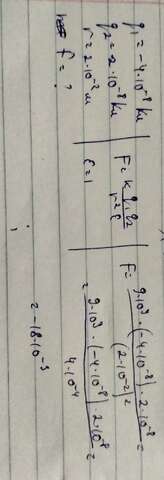 q₁ = -4·10⁻⁸ Кл
q₂ = 2·10⁻⁸ Кл
r = 2·10⁻² м
f = ?
F = k q₁ q₂ / r² ε
ε = 1
F = 9·10⁹ · (-4·10⁻⁸) · 2·10⁻⁸ / (2·10⁻²)² =
= 9·10⁹ · (-4·10⁻⁸) · 2·10⁻⁸ / 4·10⁻⁴ =
= -18·10⁻³